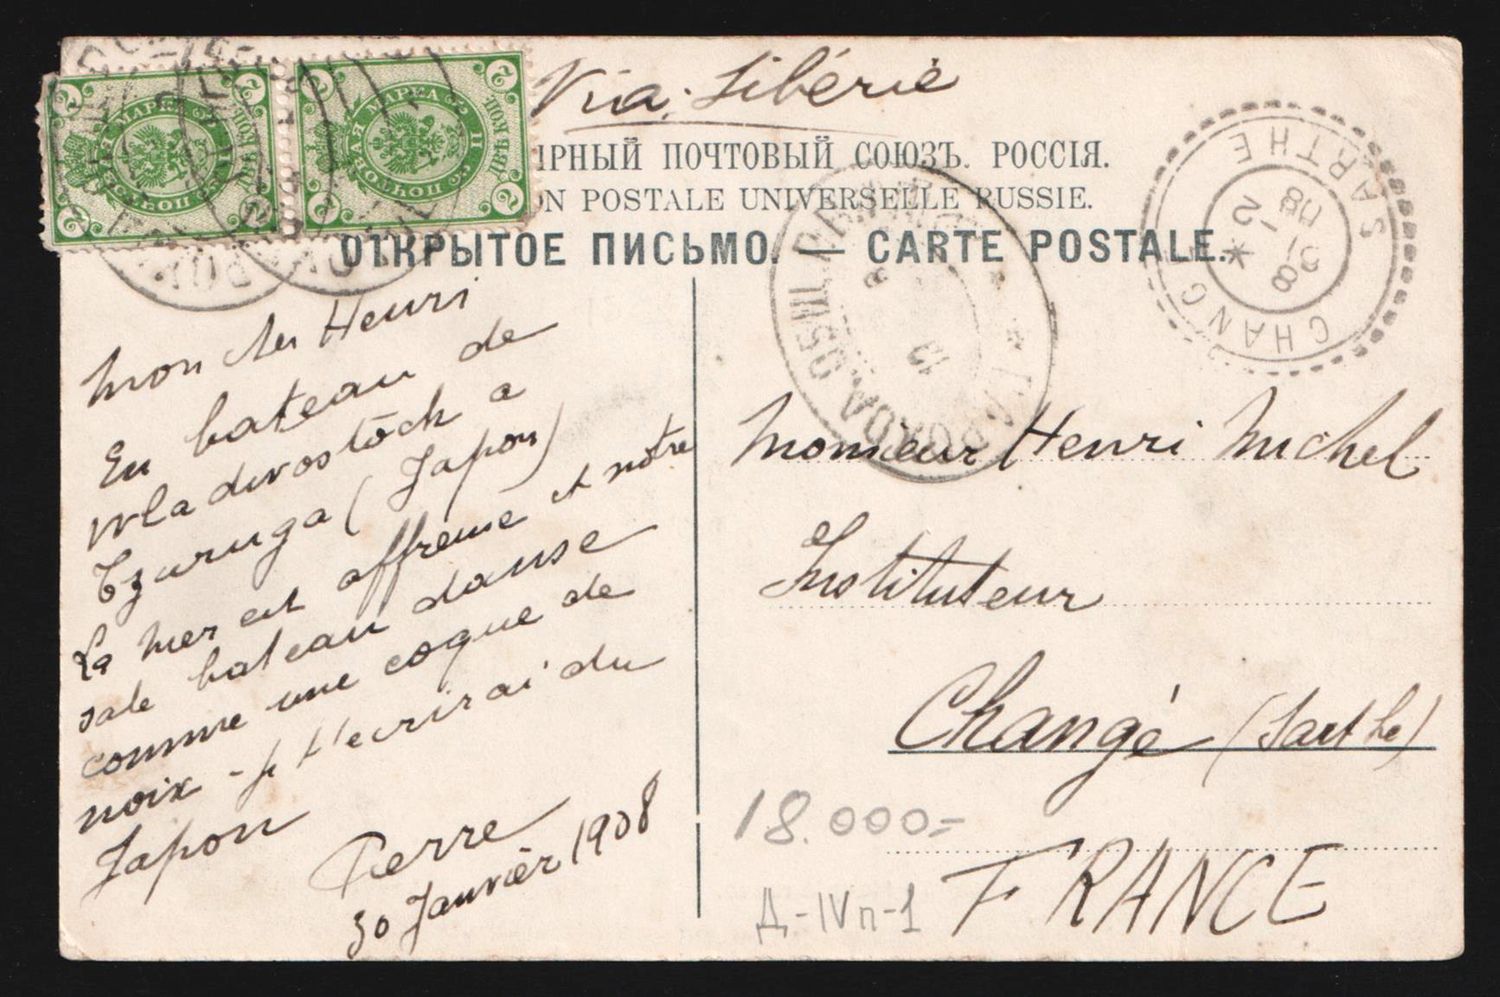 Via Sibérie
ІРНЫЙ ПОЧТОВЫЙ СОЮЗЪ. РОССІЯ.
ON POSTALE UNIVERSELLE RUSSIE.
ОТКРЫТОЕ ПИСЬМО. — CARTE POSTALE.
МАРКА
2
2
2
2
CHANGÉ SARTHE
28
2
08
Mon cher Henri
En bateau de
Wladivostock a
Tzuruga (Japon)
La mer est affreuse et notre
sale bateau danse
comme une coque de
noix - je t'ecrirai du
Japon
Pierre
30 Janvier 1908
Monsieur Henri Michel
Instituteur
Changé (Sarthe)
FRANCE
18.000-
Д-IVп-1